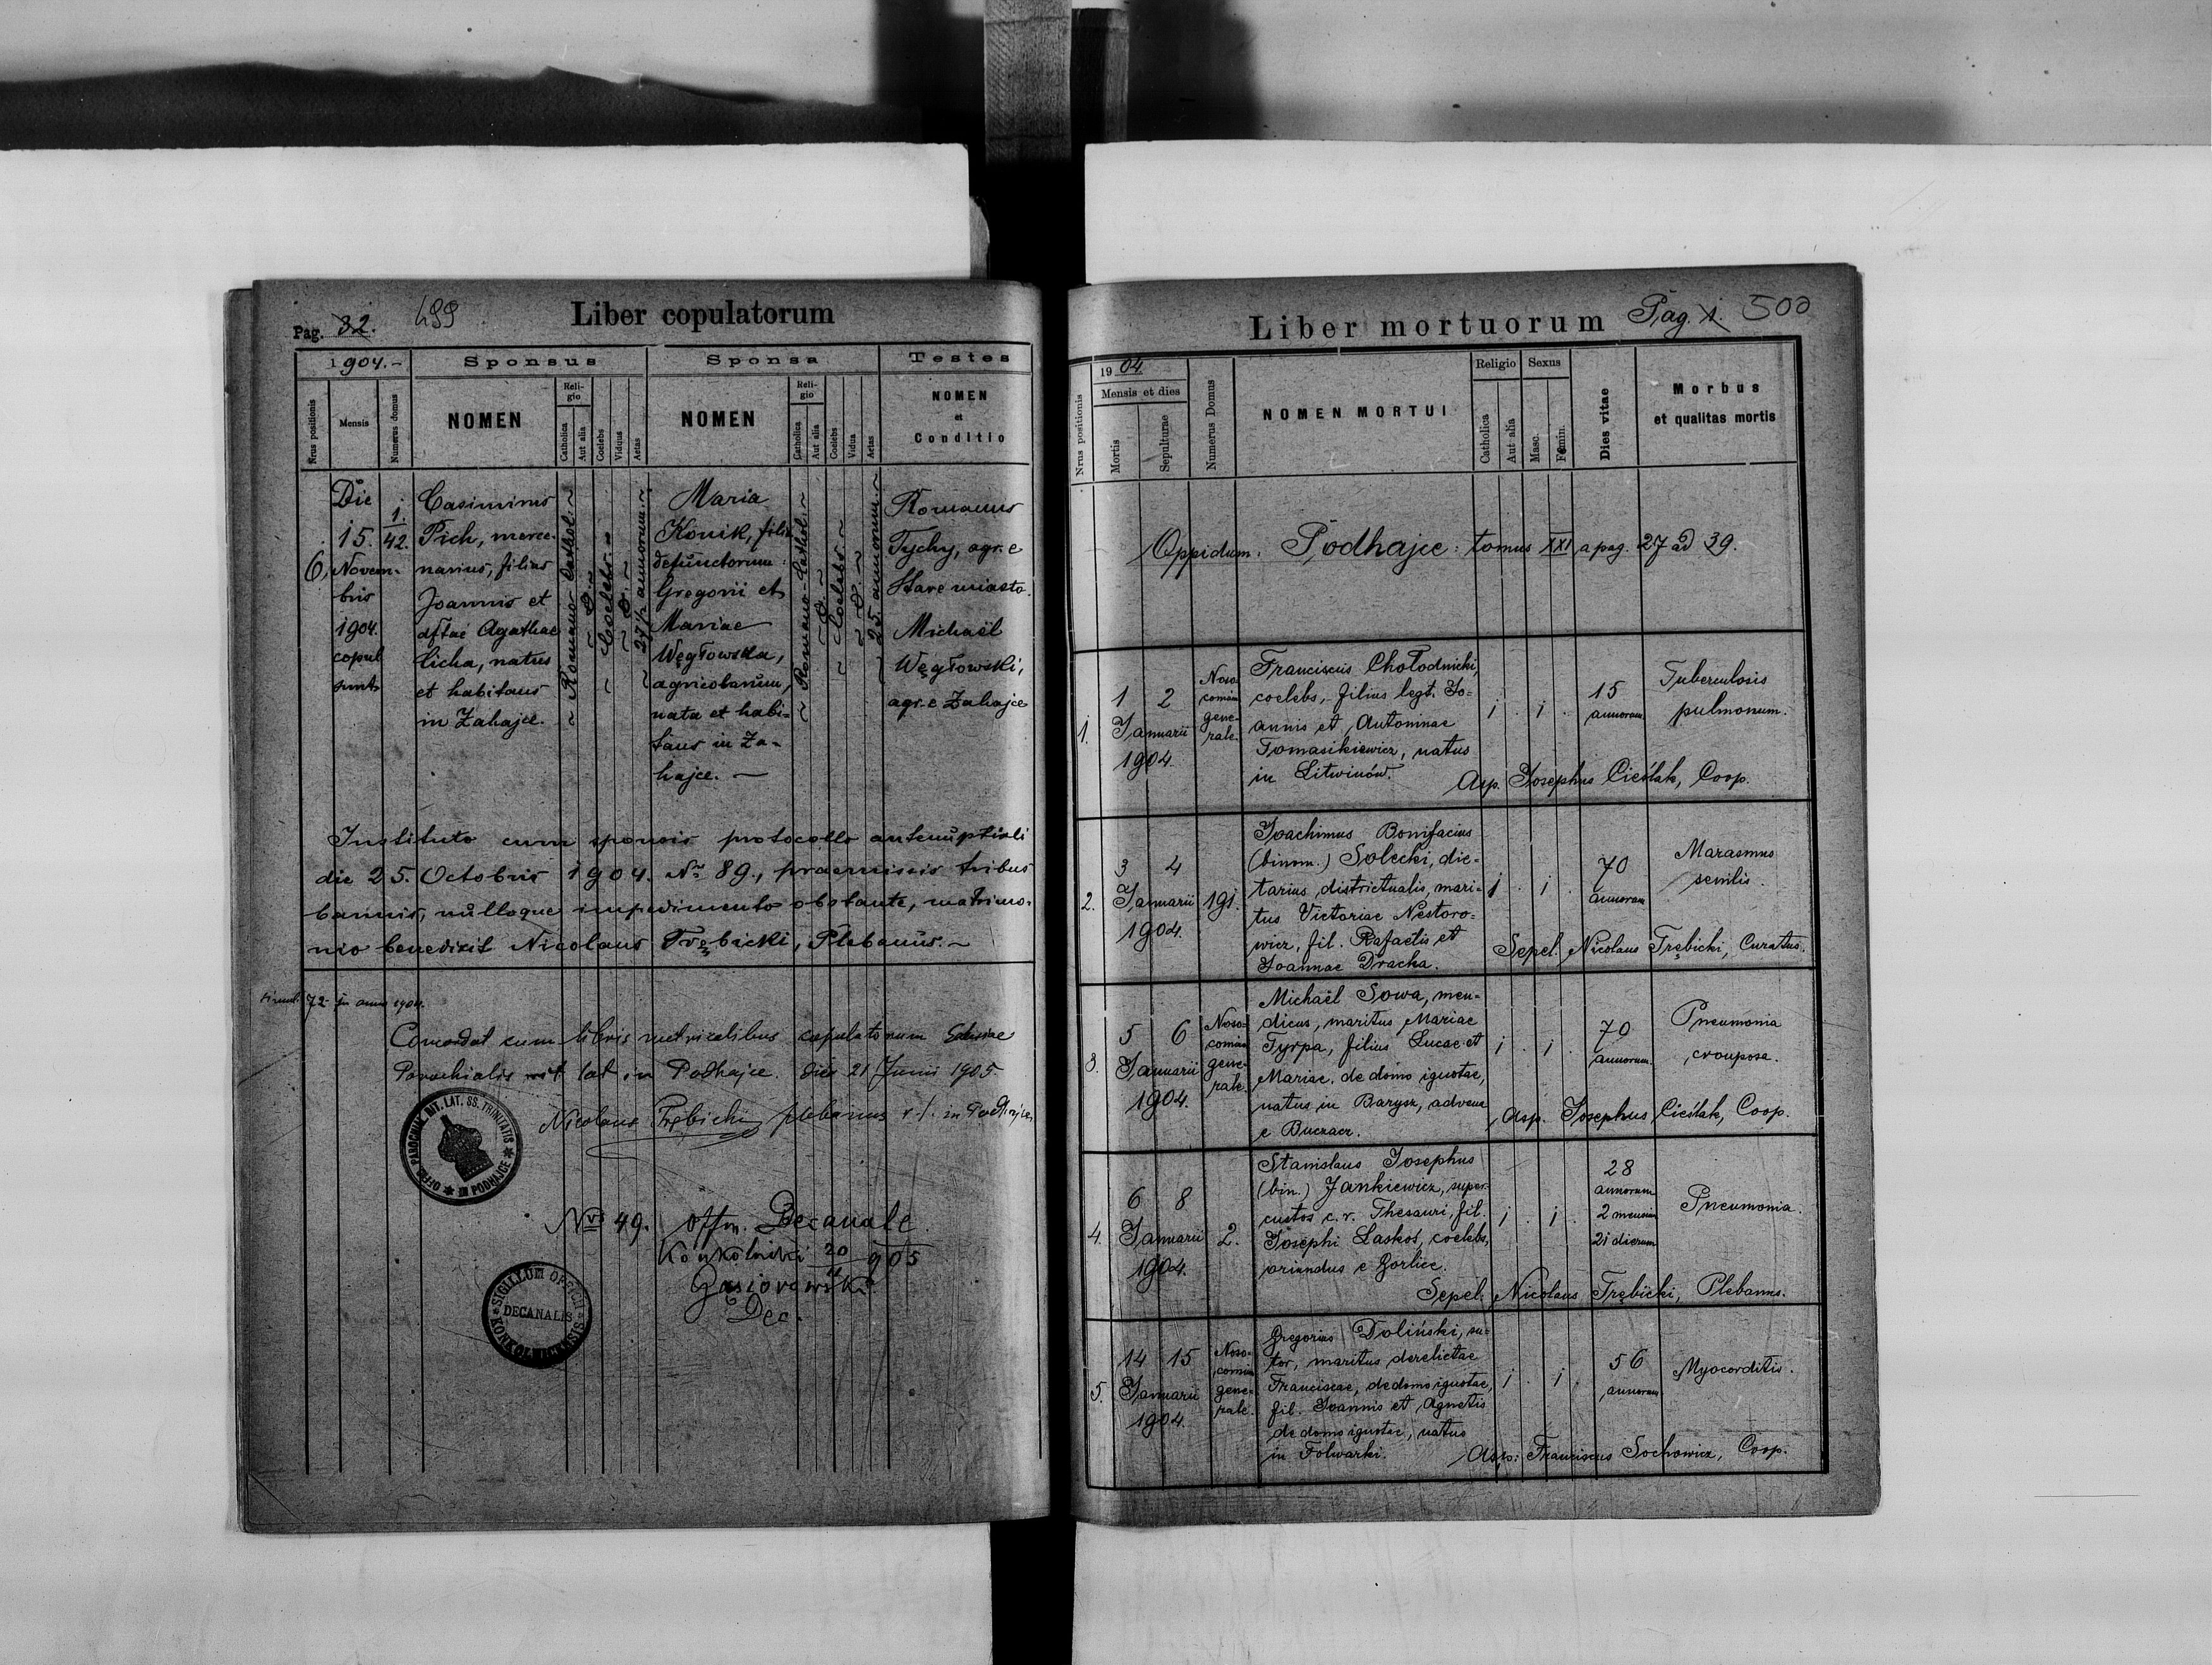 Pag. 32. 499
Liber copulatorum
1904.-
Sponsus
Sponsa
Testes
Nrus positionis
Mensis
Numerus domus
NOMEN
Religio
Catholica
Aut alia
Coelebs
Viduus
Aetas
NOMEN
Religio
Catholica
Aut alia
Coelebs
Vidua
Aetas
NOMEN
et
Conditio
6.
Die
15.
Novem-
bris
1904.
copul
sunt
1.
42.
Casimirus
Pich, merce-
narius, filius
Joannis et
dftae Agathae
Licha, natus
et habitans
in Zahajce.
~ Romano-Cathol. ~
~ 0. ~
~ Coelebs. ~
~ 0. ~
~ 27 1/2 annorum. ~
Maria
Konik, filia
defunctorum
Gregorii et
Mariae
Węgłowska,
agricolarum,
nata et habi-
tans in Za-
hajce. -
~ Romano-Cathol. ~
~ 0. ~
~ Coelebs ~
~ 0. ~
~ 25 annorum. ~
Romanus
Tychy, agr. e
Stare miasto.
Michaël
Węgłowski,
agr. e Zahajce
Instituto cum sponsis protocollo antenuptiali
die 25. Octobris 1904. Nr 89., praemissis tribus
bannis, nulloque impedimento obstante, matrimo-
nio benedixit Nicolaus Trębicki, Plebanus. ~
72 in anno 1904.
Concordat cum libris metricalibus copulatorum Ecclesiae
Parochialis rit lat in Podhajce. die 21 Junii 1905.
Nicolaus Trębicki plebanus r. l. in Podhajce
OFF. PAROCHIAE RIT. LAT. SS. TRINITATIS IN PODHAJCE
Nr 49. Offm. Decanale
Konkolniki 20 905
Gąsiorowski
Dec.
SIGILLUM OFFICII
DECANALIS
KONKOLNICENSIS
Liber mortuorum
Pag. 1. 500
Nrus positionis
1904
Mensis et dies
Mortis
Sepulturae
Numerus Domus
NOMEN MORTUI
Religio
Catholica
Aut alia
Sexus
Masc.
Fémin.
Dies vitae
Morbus
et qualitas mortis
Oppidum: Podhajce: tomus XXI a pag. 27 ad 39.
1.
1 2
Januarii
1904.
Noso-
comium
gene-
rale.
Franciscus Chołodnicki,
coelebs, filius legt. Jo-
annis et Antoninae
Tomasikiewicz, natus
in Litwinów.
1 . 1 .
15
annorum
Tuberculosis
pulmonum.
Asp. Josephus Cieślak, Coop.
2.
3 4
Januarii
1904.
191.
Joachimus Bonifacius
(binom.) Solecki, die-
tarius districtualis, mari-
tus Victoriae Nestoro-
wicz, fil. Rafaelis et
Joannae Dracka.
1 . 1 .
70
annorum
Marasmus
senilis.
Sepel. Nicolaus Trębicki, Curatus.
3.
5 6
Januarii
1904.
Noso-
comium
gene-
rale.
Michaël Sowa, men-
dicus, maritus Mariae
Tyrpa, filius Lucae et
Mariae, de domo ignotae,
natus in Barysz, advena
e Buczacz.
1 . 1 .
70
annorum
Pneumonia
crouposa.
Asp. Josephus Cieślak, Coop.
4.
6 8
Januarii
1904.
2.
Stanislaus Josephus
(bin.) Jankiewicz, super-
custos c. r. Thesauri, fil.
Josephi Laskoś, coelebs,
oriundus e Gorlice.
1 . 1 .
28
annorum
2 mensium
21 dierum
Pneumonia.
Sepel. Nicolaus Trębicki, Plebanus.
5.
14 15
Januarii
1904.
Noso-
comium
gene-
rale.
Gregorius Doliński, su-
tor, maritus derelictae
Franciscae, de domo ignotae,
fil. Joannis et Agnetis
de domo ignotae, natus
in Folwarki.
1 . 1 .
56
annorum
Myocorditis.
Asp: Franciscus Sochowicz, Coop.